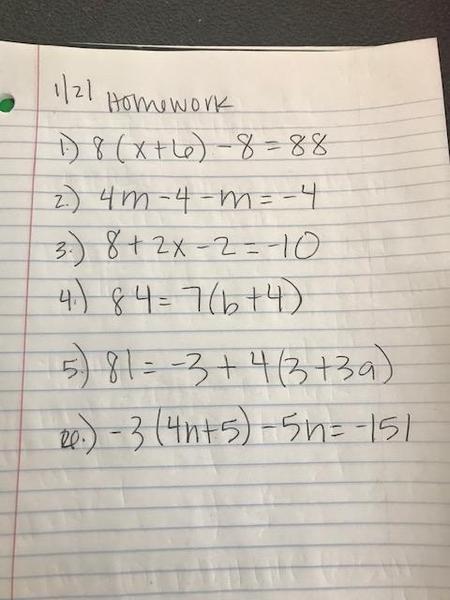 1/21 Homework
1.) 8(x+6)-8=88
2.) 4m-4-m=-4
3.) 8+2x-2=-10
4.) 84=7(b+4)
5.) 81=-3+4(3+3a)
6.) -3(4n+5)-5n=-151